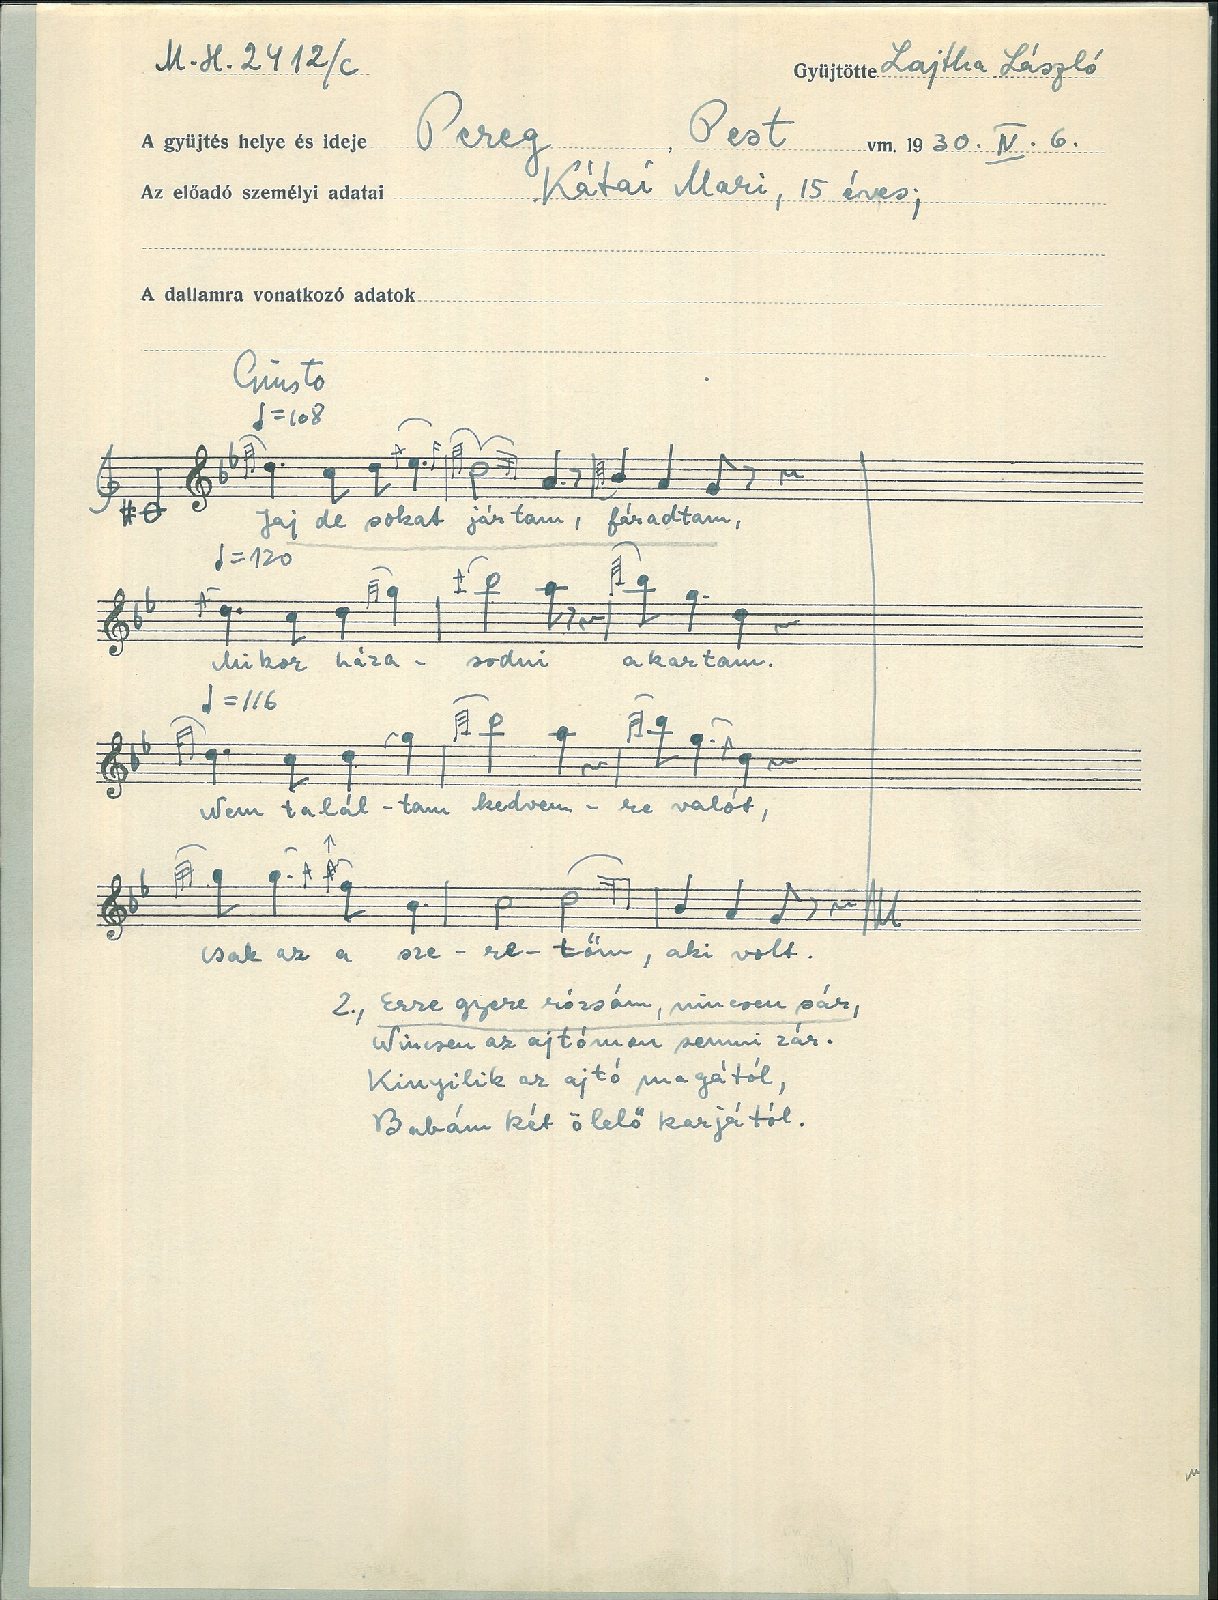 M.H. 2412/c
Gyüjtötte Lajtha László
A gyüjtés helye és ideje Pereg, Pest vm. 1930. IV. 6.
Az előadó személyi adatai Kátai Mari, 15 éves;
A dallamra vonatkozó adatok
Giusto
♩=108
Jaj de sokat jártam, fáradtam,
♩=120
Mikor háza- sodni akartam.
♩=116
Nem talál-tam kedvem-re valót,
Csak az a sze-re-tőm, aki volt.
2., Erre gyere rózsám, nincsen sár,
Nincsen az ajtómon semmi zár.
Kinyilik az ajtó magától,
Babám két ölelő karjától.